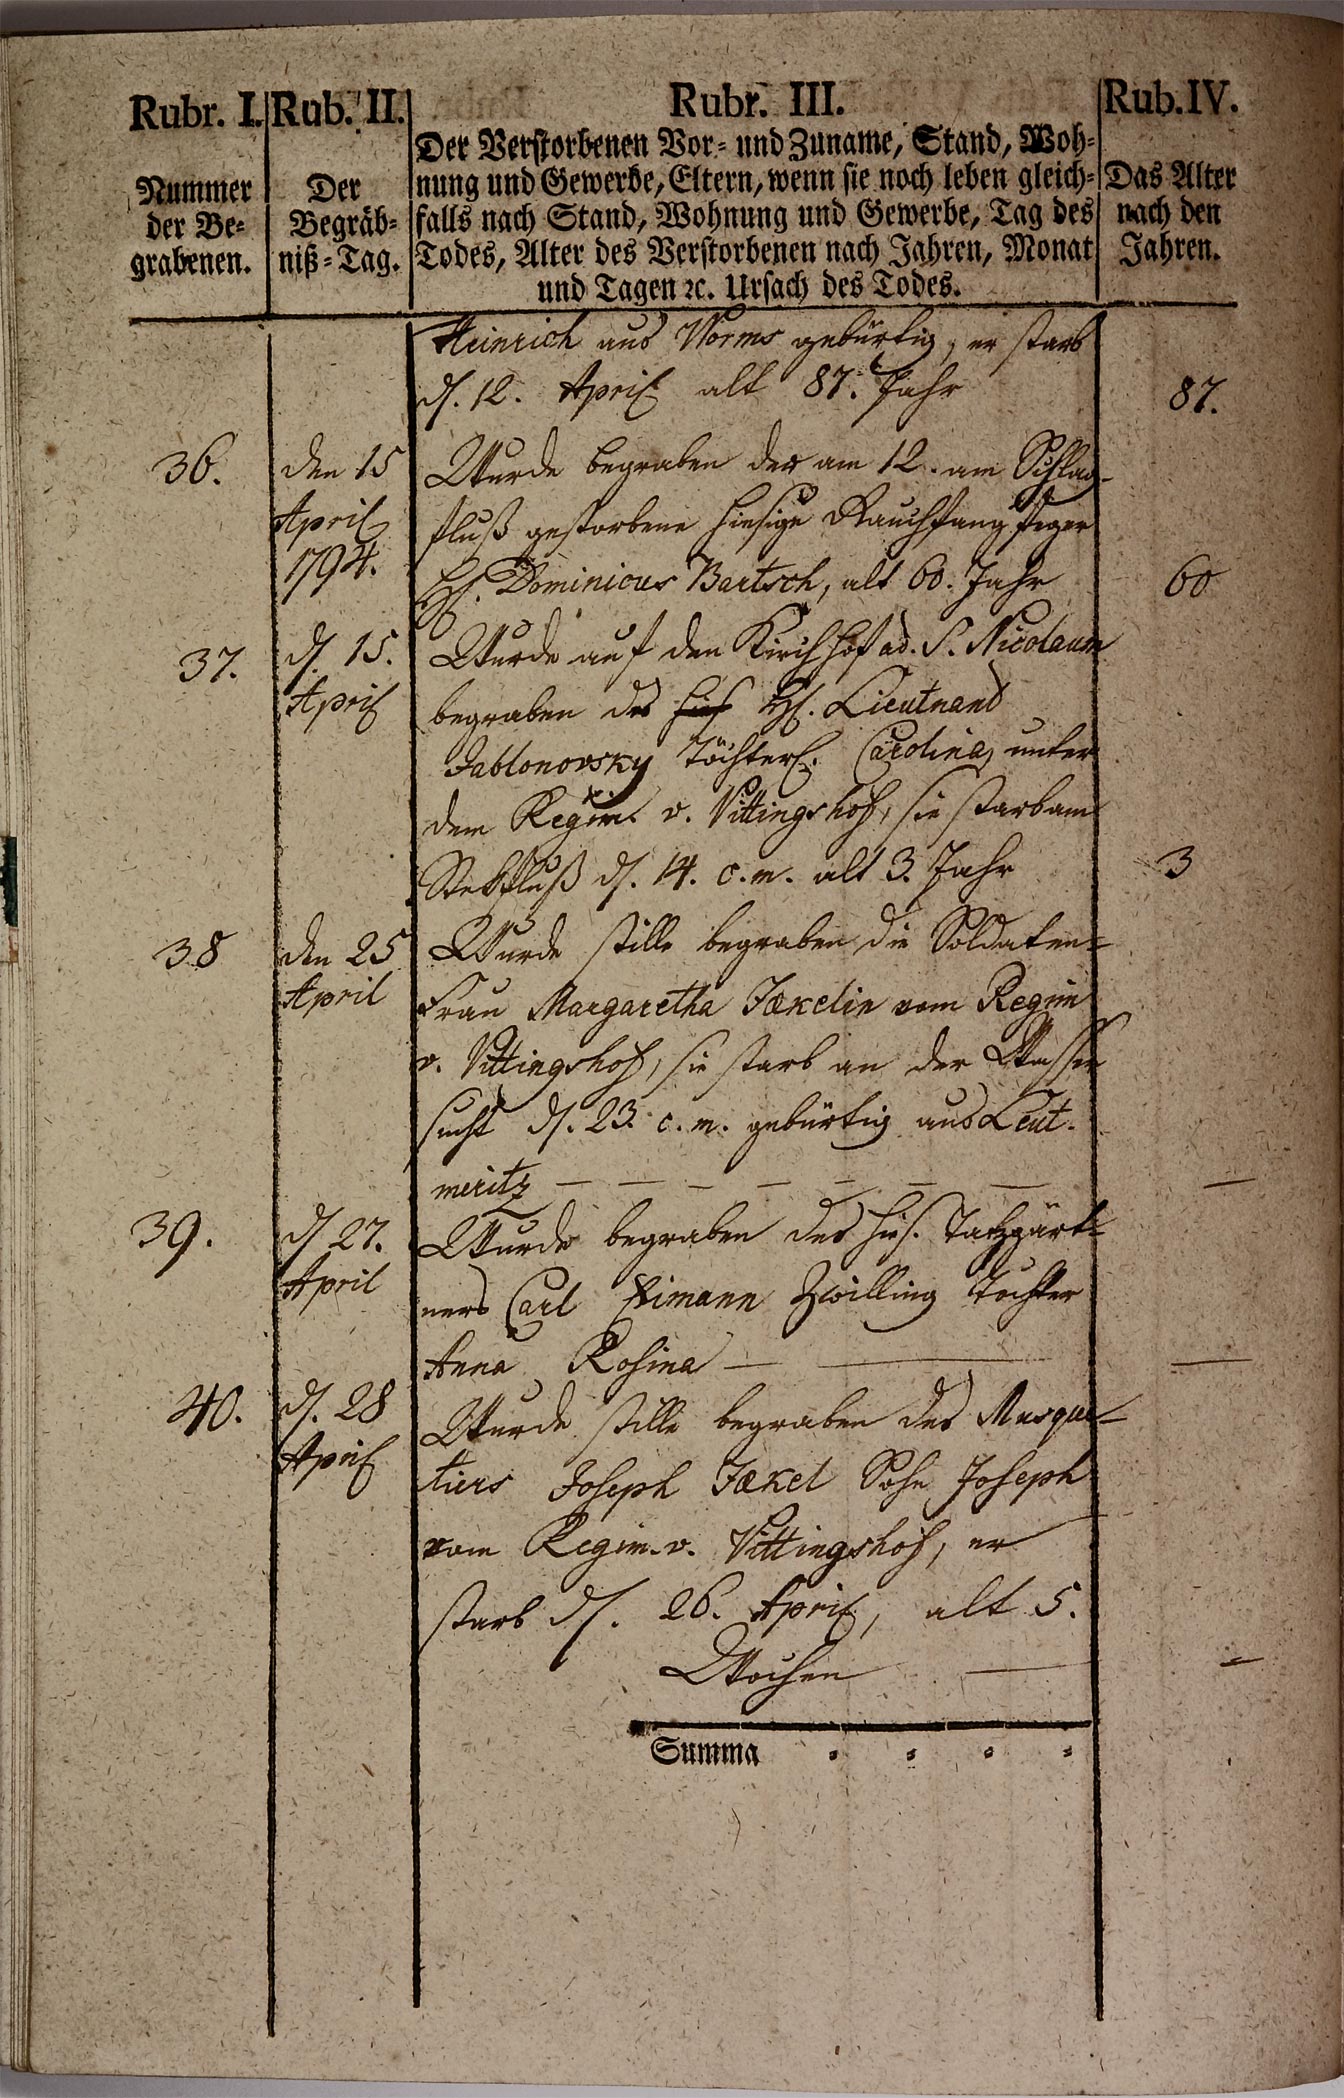 Rubr. I. Rub. II. Rubr. III. Rub. IV.
Nummer der Be-
grabenen.
Der
Begräb-
niß-Tag.
Der Verstorbenen Vor- und Zuname, Stand, Woh-
nung und Gewerbe, Eltern, wenn sie noch leben gleich-
falls nach Stand, Wohnung und Gewerbe, Tag des
Todes, Alter des Verstorbenen nach Jahren, Monat
und Tagen ꝛc. Ursach des Todes.
Das Alter
nach den
Jahren.
Heinrich aus Worms gebürtig, er starb
d. 12. April alt 87. Jahr 87.
36. den 15 Wurde begraben der am 12. am Schlag-
April fluß gestorbene hiesige Rauchfang feger
1794. H. Dominicus Bartsch, alt 60. Jahr 60
37. d. 15. Wurde auf den Kirchhof ad. S. Nicolaum
April begraben des hies H. Lieutnand
Jablonovsky Töchterl. Carolina, unter
dem Regim. v. Vittingshof, sie starb am
Stekfluß d. 14. c. m. alt 3. Jahr 3
38 den 25 Wurde stille begraben die Soldaten-
April Frau Margaretha Jækelin vom Regim
v. Vittingshof, sie starb an der Wasser
sucht d. 23. c. m. gebürtig aus Leut-
meritz — — — — — — — —
39. d 27. Wurde begraben des hies. gärt-
April ners Carl Zwilling Tochter
Anna Rosina — — —
40. d. 28 Wurde stille begraben des Musque-
April tiers Joseph Jækel Sohn Joseph
vom Regim. v. Vittingshof, er
starb d. 26. April, alt 5.
Wochen — —
Summa - - - -